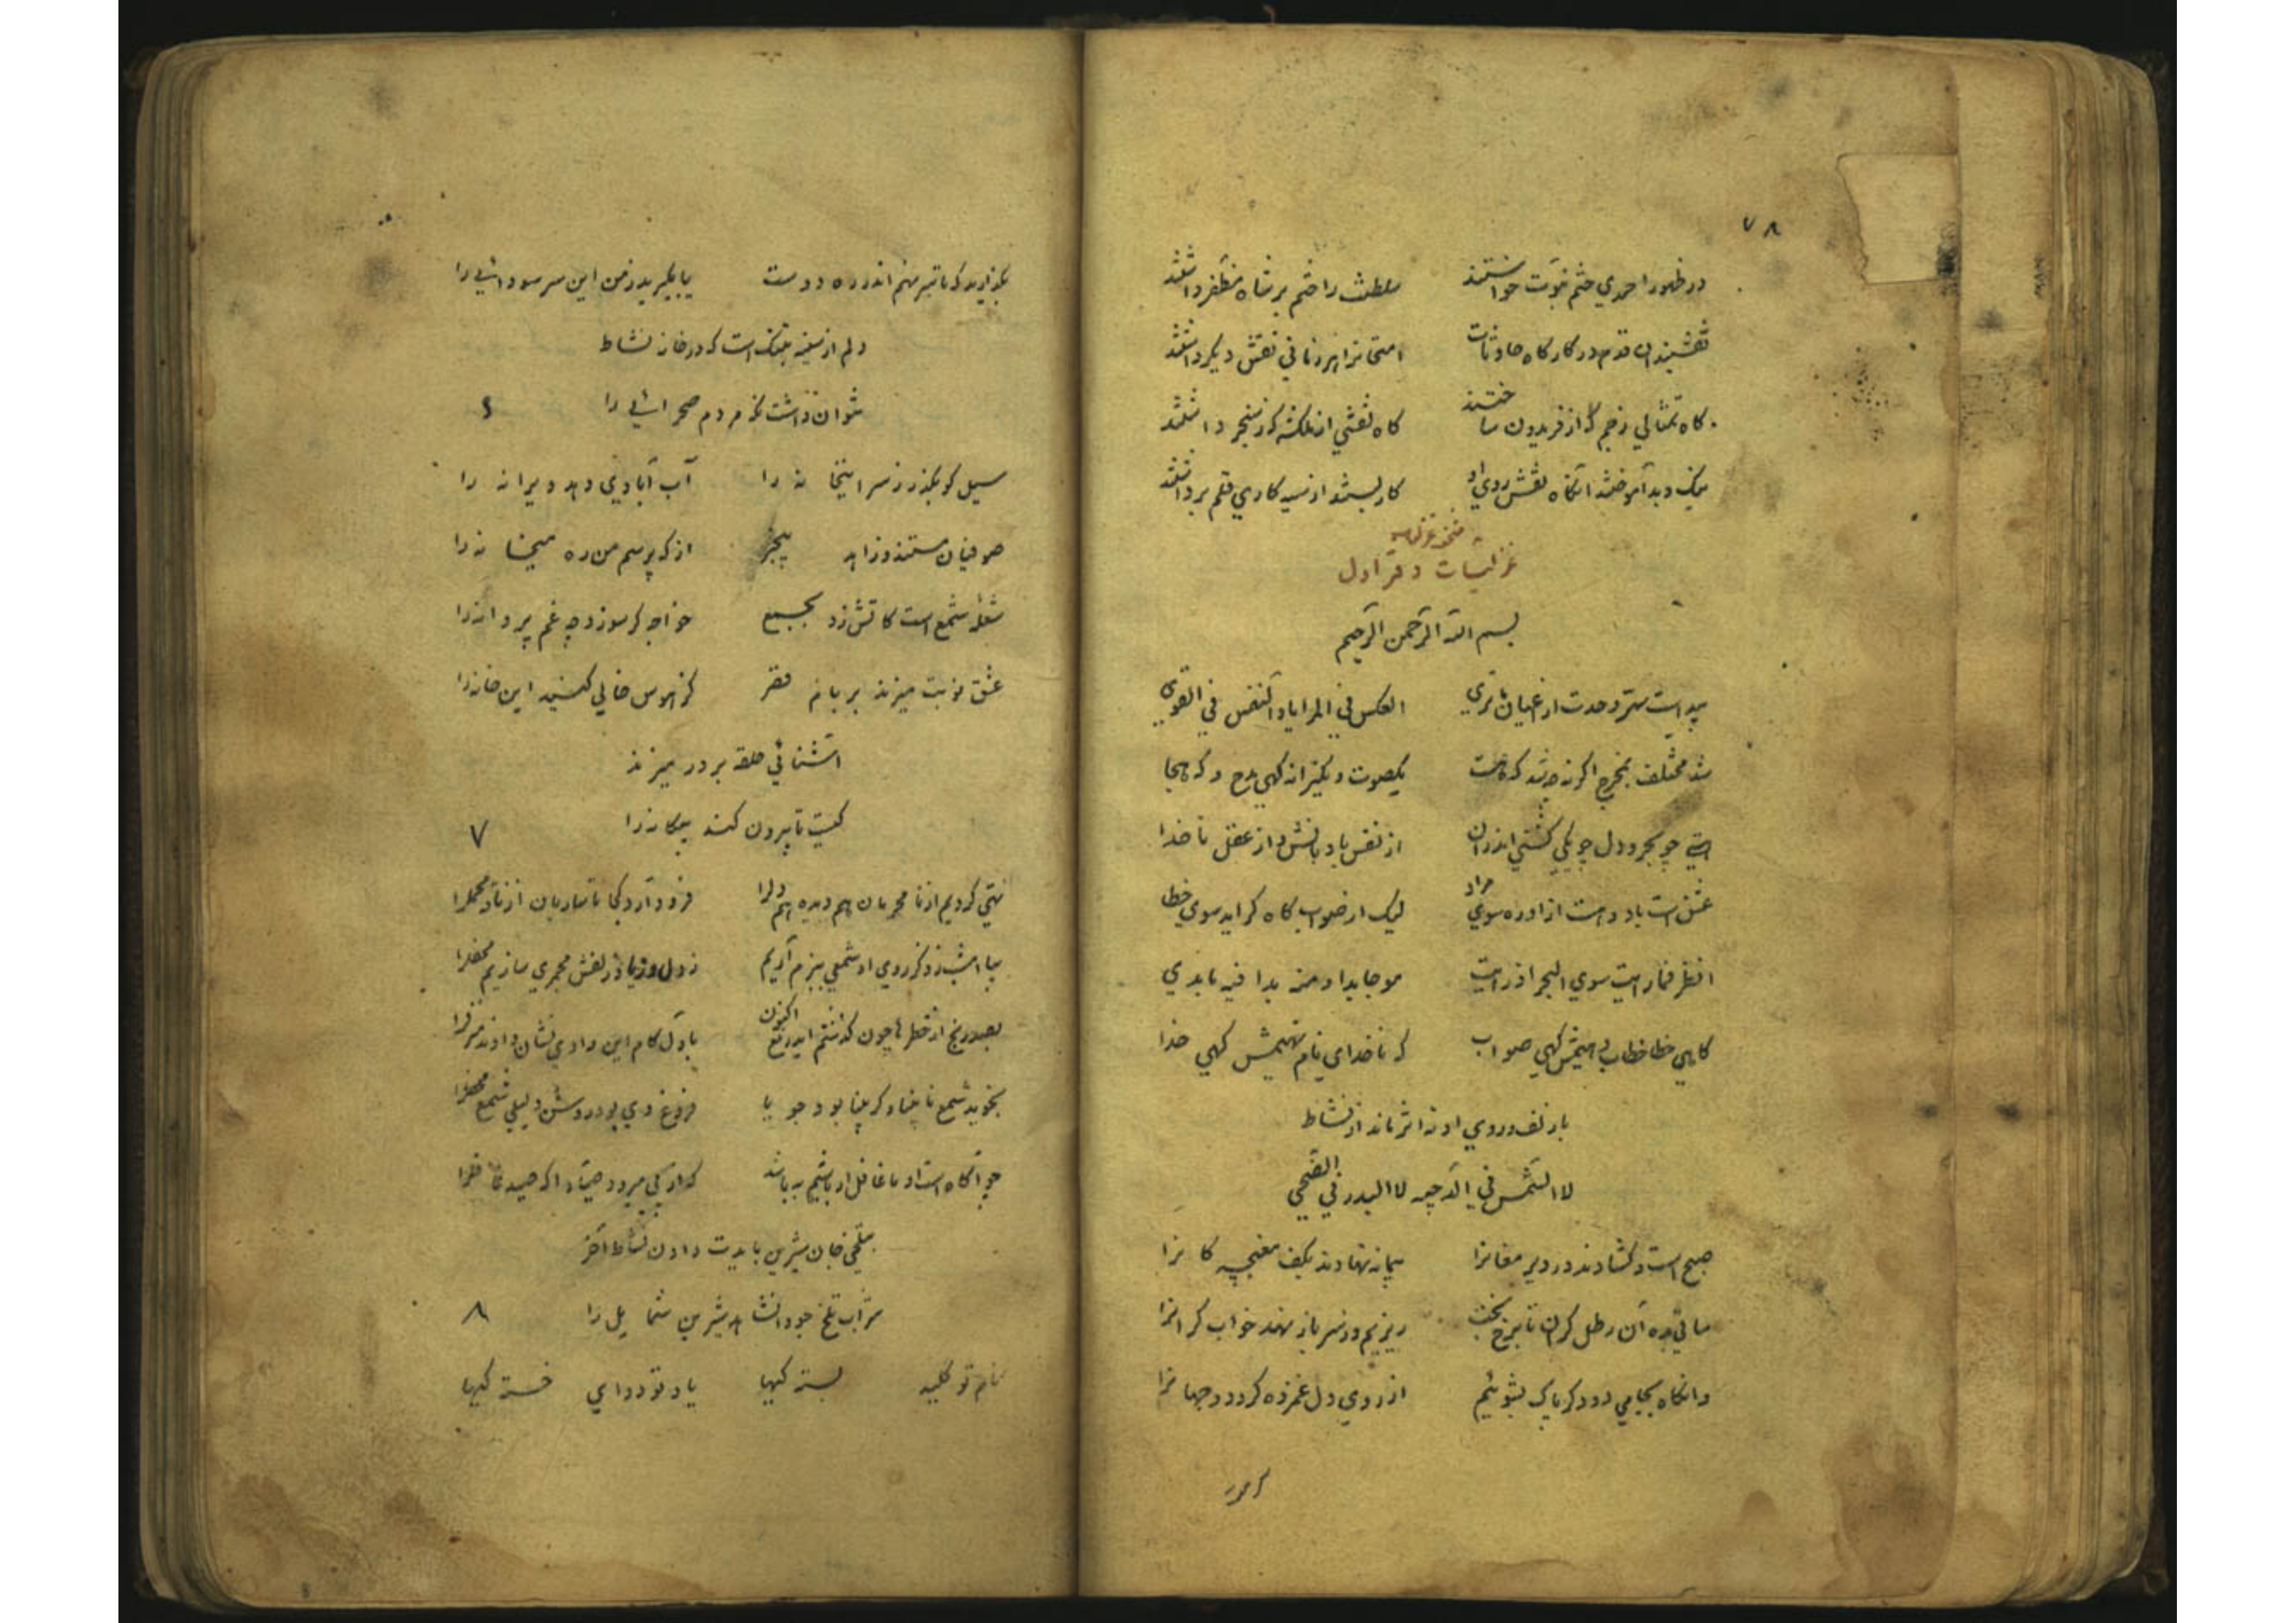 ۷۸
در ظهور احمدی ختم نبوت خواستند سلطنت را ختم بر شاه مظفر داشتند
نقشبندان قدم در کارگاه حادثات امتحانرا هر زمانی نقش دیگر داشتند
گاه تمثالی ز جم گه از فریدون ساختند گاه نقشی از ملکشه گه ز سنجر داشتند
نیک و بد آموختند آنگاه نقش روی او کار بستند از سیه کاری قلم برداشتند
غزلیات دفتر اول
بسم الله الرحمن الرحیم
پیداست سر وحدت از اعیان اما تری العکس فی المرایا و النفس فی القوی
شد مختلف بمخرج اگر نه چه شد که هست یکصوت و یکترانه گهی مدح و گه هجا
هستی چو بحر و دل چو یکی کشتی اندران از نفس بادبانش و از عقل ناخدا
عشق است باد و هست ازاو ره سوی مراد لیک از صواب گاه گراید سوی خطا
انظر فما رایت سوی البحر اذ رایت موجا بدا و منه بدا فیه ما بدی
گاهی خطا خطاب دهیمش گهی صواب گه ناخدای نام نهیمش گهی خدا
با زلف و روی او نه اثر ماند از نشاط
لا الشمس فی الدجیه لا البدر فی الضحی
صبح است و گشادند در دیر مغانرا پیمانه نهادند بکف مغبچه گانرا
ساقی بده آن رطل گران تا برخ بخت ریزیم و ز سر باز نهد خواب گرانرا
وانگاه بجامی دو دگر پاک بشوئیم از روی دل غمزده گرد دو جهانرا
بگذارید که تا سر نهم اندر ره دوست یا بگیرید ز من این سر سودائی را
دلم از سینه بتنگ است که در خانه نشاط
نتوان داشت نگه مردم صحرائی را ۶
سیل گو بگذر ز سر اینخانه را آب آبادی دهد ویرانه را
صوفیان مستند و زاهد بیخبر از که پرسم من ره میخانه را
شعله شمع است کاتش زد بجمع خواجه گر سوزد چه غم پروانه را
عشق نوبت میزند بر بام فقر کز هوس خالی کنید این خانه را
آشنائی حلقه بر در میزند
کیست تا بیرون کند بیگانه را ۷
تهی کردیم از نامحرمان هم دیده هم دلرا فرود آرد کجا تا ساربان از ناقه محملرا
بیا امشب ز ذکر روی او شمعی ببزم آریم ز دل وز یاد زلفش مجمری سازیم محفلرا
بصد رنج از خطرها چون گذشتم ایدریغ اکنون باول گام این وادی نشان دادند منزلرا
نجوید شمع نابینا و گر بینا بود جویا فروغ روی او در روشن دلیلی شمع محفلرا
چو آگاه است او ما غافل ار باشیم به باشد که از پی میرود صیاد آگه صید غافلرا
بتلخی جان شیرین بایدت دادن نشاط آخر
شراب تلخ جود انشاهد شیرین شمایل را ۸
نام تو کلید بسته گیها یاد تو دوای خسته گیها